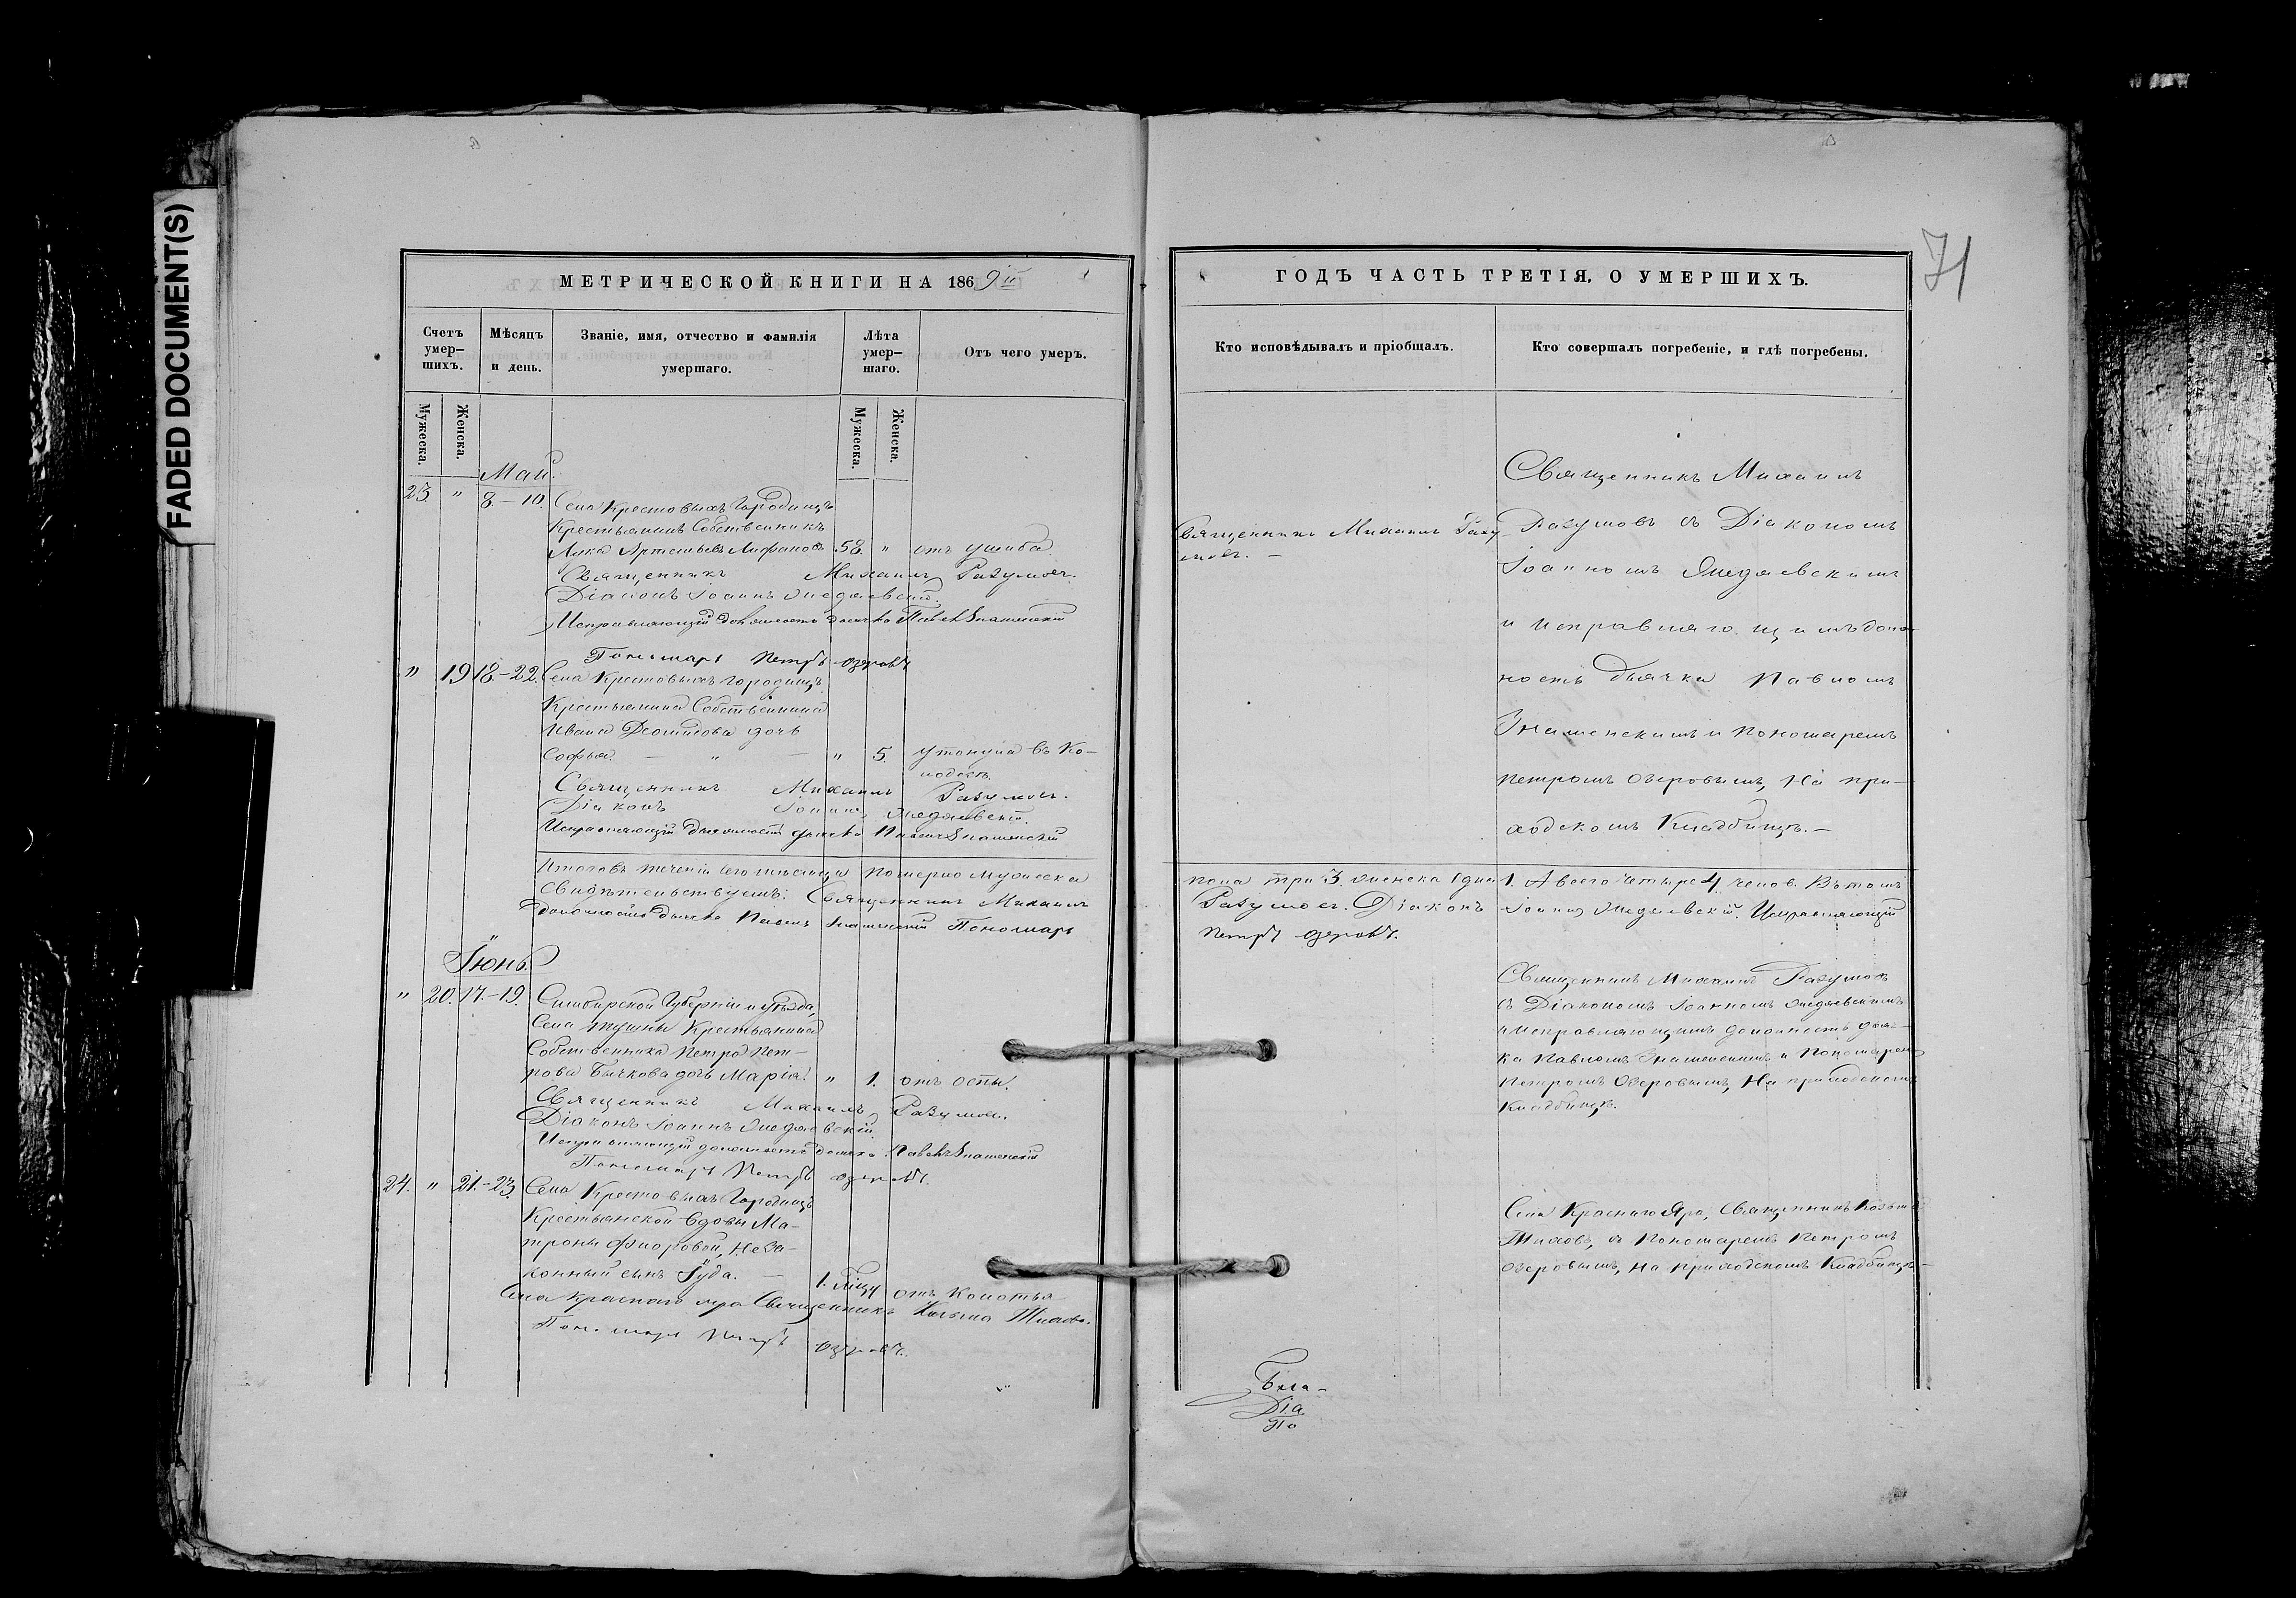 FADED DOCUMENT(S)
МЕТРИЧЕСКОЙ КНИГИ НА 1869й
Счетъ умер-шихъ.
Мѣсяцъ и день.
Званіе, имя, отчество и фамилія умершаго.
Лѣта умер-шаго.
Отъ чего умеръ.
Мужеска.
Женска.
Мужеска.
Женска.
Май.
23. " 8.-10. Села Крестовыхъ Городищъ
Крестьянинъ Собственникъ
Артемьевъ 58. " отъ ушиба.
Священникъ Михаилъ Разумовъ.
Діаконъ Іоаннъ
Исправляющій должность дьячка Павелъ Знаменскій
Пономарь Петръ Озеровъ
" 19 18.-22. Села Крестовыхъ Городищъ
Крестьянина Собственника
Ивана дочь
Софья. — " — " 5. утонула въ Ко-
лодезѣ.
Священникъ Михаилъ Разумовъ.
Діаконъ Іоаннъ
Исправляющій должность дьячка Павелъ Знаменскій
Итого въ теченіи сего мѣсяца померло мужеска
Свидѣтельствуемъ: Священникъ Михаилъ
должность дьячка Павелъ Знаменскій Пономарь
Іюнь.
" 20. 17.-19. Симбирской Губерніи и уѣзда,
Села Тушны Крестьянина
Собственника Петра Пет-
рова Бычкова дочь Марія. " 1. отъ оспы.
Священникъ Михаилъ Разумовъ.
Діаконъ Іоаннъ
Исправляющій должность дьячка Павелъ Знаменскій
Пономарь Петръ Озеровъ.
24. " 21.-23. Села Крестовыхъ Городищъ
Крестьянской вдовы Ма-
троны Неза-
конный сынъ Іуда. — 1. отъ
Села Краснаго яра Священникъ Козьма
Пономарь Петръ Озеровъ.
71
ГОДЪ ЧАСТЬ ТРЕТІЯ, О УМЕРШИХЪ.
Кто исповѣдывалъ и пріобщалъ.
Кто совершалъ погребеніе, и гдѣ погребены.
Священникъ Михаилъ Разу-
мовъ. —
Священникъ Михаилъ
Разумовъ съ Діакономъ
Іоанномъ
и Исправляющимъ долж-
ность дьячка Павломъ
Знаменскимъ и пономаремъ
Петромъ Озеровымъ, На при-
ходскомъ Кладбищѣ. —
пола три 3. женска одна 1. А всего четыре 4 челов. Въ томъ
Разумовъ. Діаконъ Іоаннъ Исправляющій
Петръ Озеровъ.
Священникъ Михаилъ Разумовъ
съ Діакономъ Іоанномъ
и Исправляющимъ должность дьяч-
ка Павломъ Знаменскимъ и Пономаремъ
Петромъ Озеровымъ, На приходскомъ
Кладбищѣ.
Села Краснаго Яра, Священникъ Козьма
съ Пономаремъ Петромъ
Озеровымъ, на приходскомъ Кладбищѣ. —
Бла-
Діа